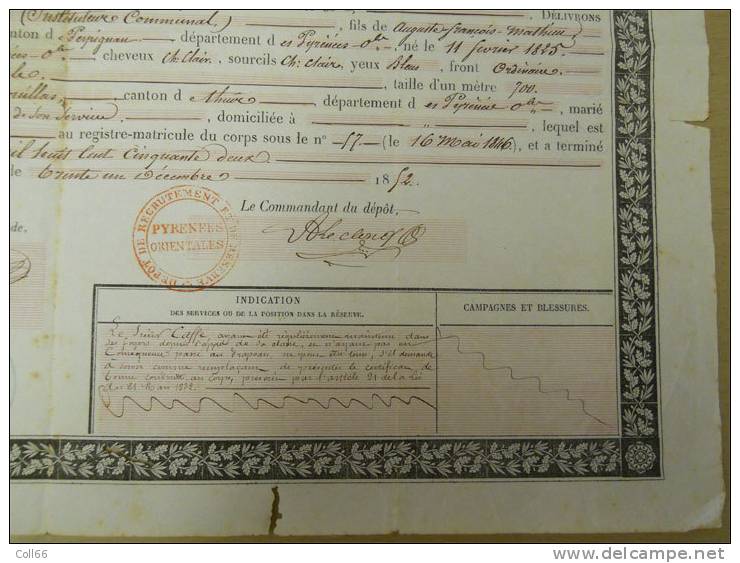 (Instituteur Communal) DÉLIVRONS
, fils de Auguste françois-Mathieu
anton d Perpignan, département d es Pyrénées-Ole, né le 11 février 1825
es-Ole, cheveux Ch. Clair, sourcils Ch: Clair, yeux Bleus, front Ordinaire
, taille d'un mètre 700.
ouillas, canton d Thuir, département d es Pyrénées Ole, marié
de son Service, domiciliée à " , lequel est
au registre-matricule du corps sous le n° 57 (le 16 Mai 1846), et a terminé
il huit Cent Cinquante deux
le trente un Décembre 1852.
Le Commandant du dépôt,
de.
DÉPÔT DE RECRUTEMENT ET DE RÉSERVE
PYRENEES
ORIENTALES
INDICATION
DES SERVICES OU DE LA POSITION DANS LA RÉSERVE.
CAMPAGNES ET BLESSURES.
Le Sieur Caffe, ayant été régulièrement maintenu dans
ses foyers depuis l'appel de sa classe, et n'ayant pas en
Conséquence passé au drapeau, ne peut être tenu, s'il demande
à servir comme remplaçant de présenter le certificat de
bonne conduite au Corps, prescrit par l'article 21 de la loi
du 21 Mars 1832.
Coll66
http://www.delcampe.net